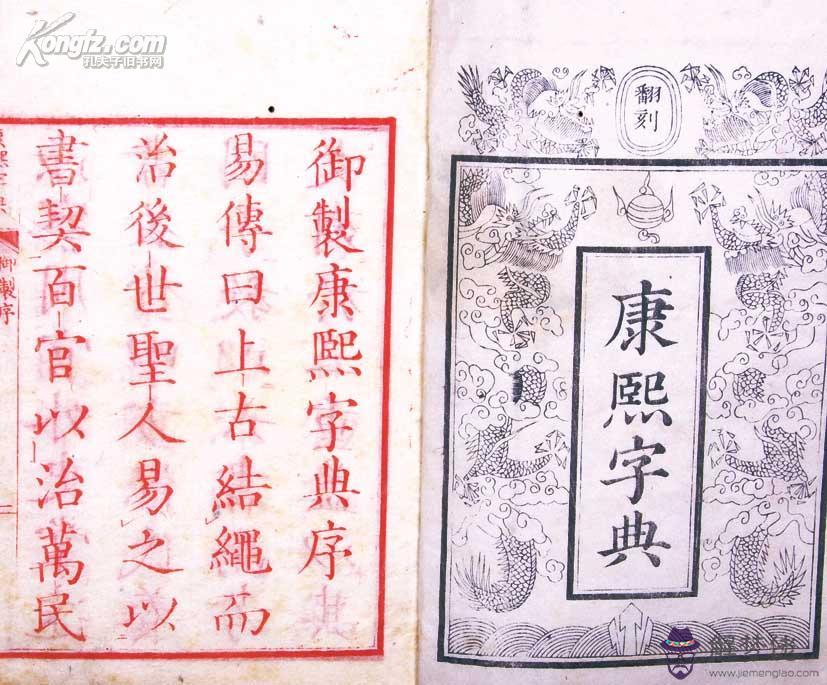 翻刻
康熙字典
御製康熙字典序
易傳曰上古結繩而
治後世聖人易之以
書契百官以治萬民
御製序
Kongfz.com
孔夫子旧书网
www.jiemenglao.com